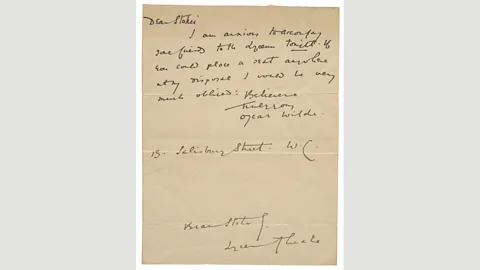 Dear Stoker
I am anxious to accompany
some friend to the Lyceum tonight. If
you could place a seat anywhere
at my disposal I would be very
much obliged: Believe me
truly yours
Oscar Wilde.
13. Salisbury Street. W C.
Bram Stoker
Lyceum Theatre